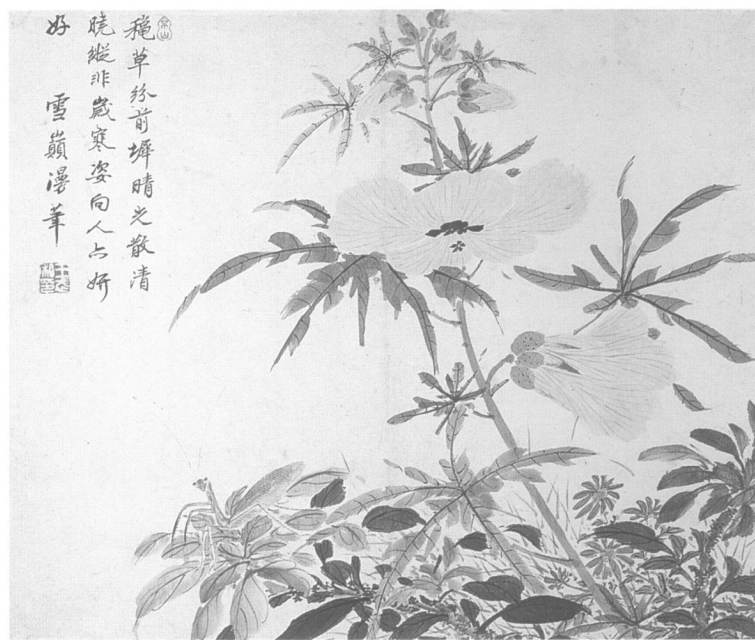 穠草紛前墀晴光散清
曉縱非歲寒姿向人亦妍
好 雪巔漫筆